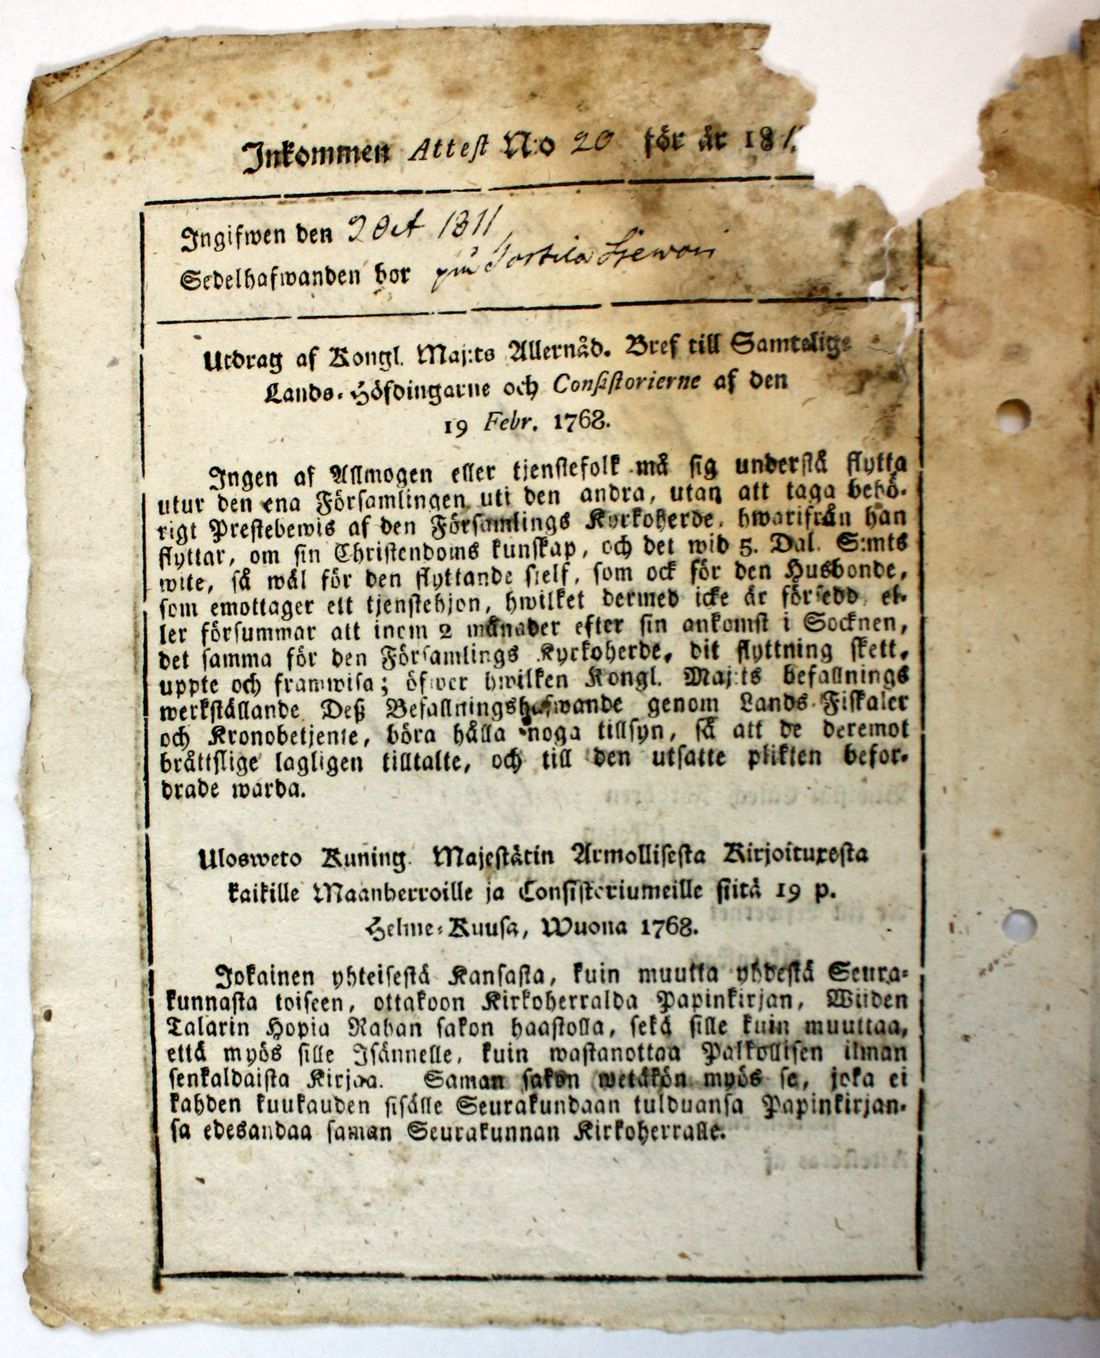 Inkommen Attest N:o 20 för år 181
Ingifwen den 2 Oct 1811
Sedelhafwanden bor
Utdrag af Kongl. Maj:ts Allernåd. Bref till Samtelige
Lands-Höfdingarne och Consistorierne af den
19 Febr. 1768.
Ingen af Allmogen eller tjenstefolk må sig understå flytta
utur den ena Församlingen uti den andra, utan att taga behö-
rigt Prestebewis af den Församlings Kyrkoherde, hwarifrån han
flyttar, om sin Christendoms kunskap, och det wid 5. Dal. S:mts
wite, så wäl för den flyttande sielf, som ock för den Husbonde,
som emottager ett tjenstehjon, hwilket dermed icke är försedd el-
ler försummar att inom 2 månader efter sin ankomst i Socknen,
det samma för den Församlings Kyrkoherde, dit flyttning skett,
uppte och framwisa; öfwer hwilken Kongl. Maj:ts befallnings
werkställande Deß Befallningshafwande genom Lands-Fiskaler
och Kronobetjente, böra hålla noga tillsyn, så att de deremot
bråttslige lagligen tilltalte, och till den utsatte plikten befor-
drade warda.
Ulosweto Kuning. Majestätin Armollisesta Kirjoituxesta
kaikille Maanherroille ja Consistoriumeille siitä 19 p.
Helme-Kuusa, Wuona 1768.
Jokainen yhteisestä Kansasta, kuin muutta yhdestä Seura-
kunnasta toiseen, ottakoon Kirkoherralda Papinkirjan, Wiiden
Talarin Hopia Rahan sakon haastolla, sekä sille kuin muuttaa,
että myös sille Isännelle, kuin wastanottaa Palkollisen ilman
senkaldaista Kirjaa. Saman sakon wetäkön myös se, joka ei
kahden kuukauden sisälle Seurakundaan tulduansa Papinkirjan-
sa edesandaa saman Seurakunnan Kirkoherralle.